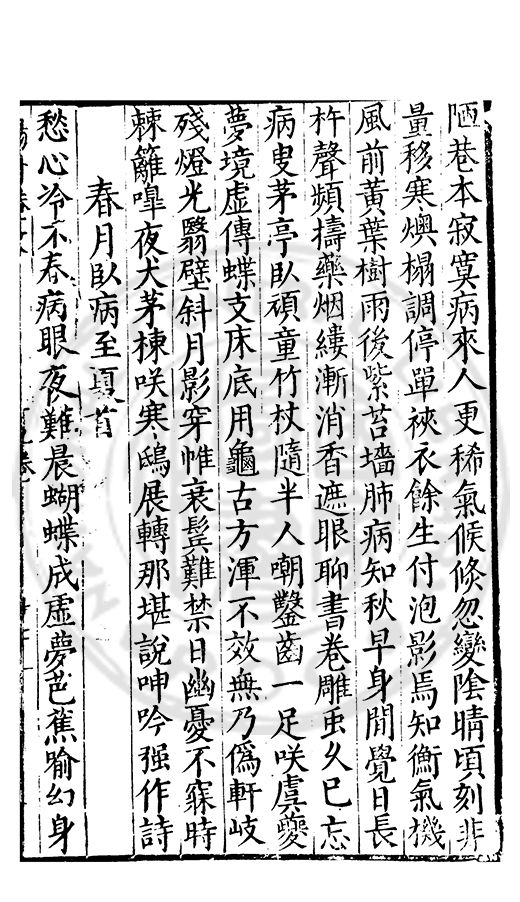 陋巷本寂寞病來人更稀氣候倐忽變陰晴頃刻非
量移寒燠榻調停單裌衣餘生付泡影焉知衡氣機
風前黃葉樹雨後紫苔墻肺病知秋早身閒覺日長
杵聲頻擣藥烟縷漸消香遮眼聊書卷雕虫久已忘
病叟茅亭臥頑童竹杖隨半人嘲鑿齒一足咲虞夔
夢境虚傳蝶支床底用龜古方渾不效無乃僞軒岐
殘燈光翳壁斜月影穿帷衰鬂難禁日幽憂不寐時
棘籬嘷夜犬茅棟咲寒鴟展轉那堪說呻吟强作詩
春月臥病至夏首
愁心冷不春病眼夜難晨蝴蝶成虚夢芭蕉喻幻身